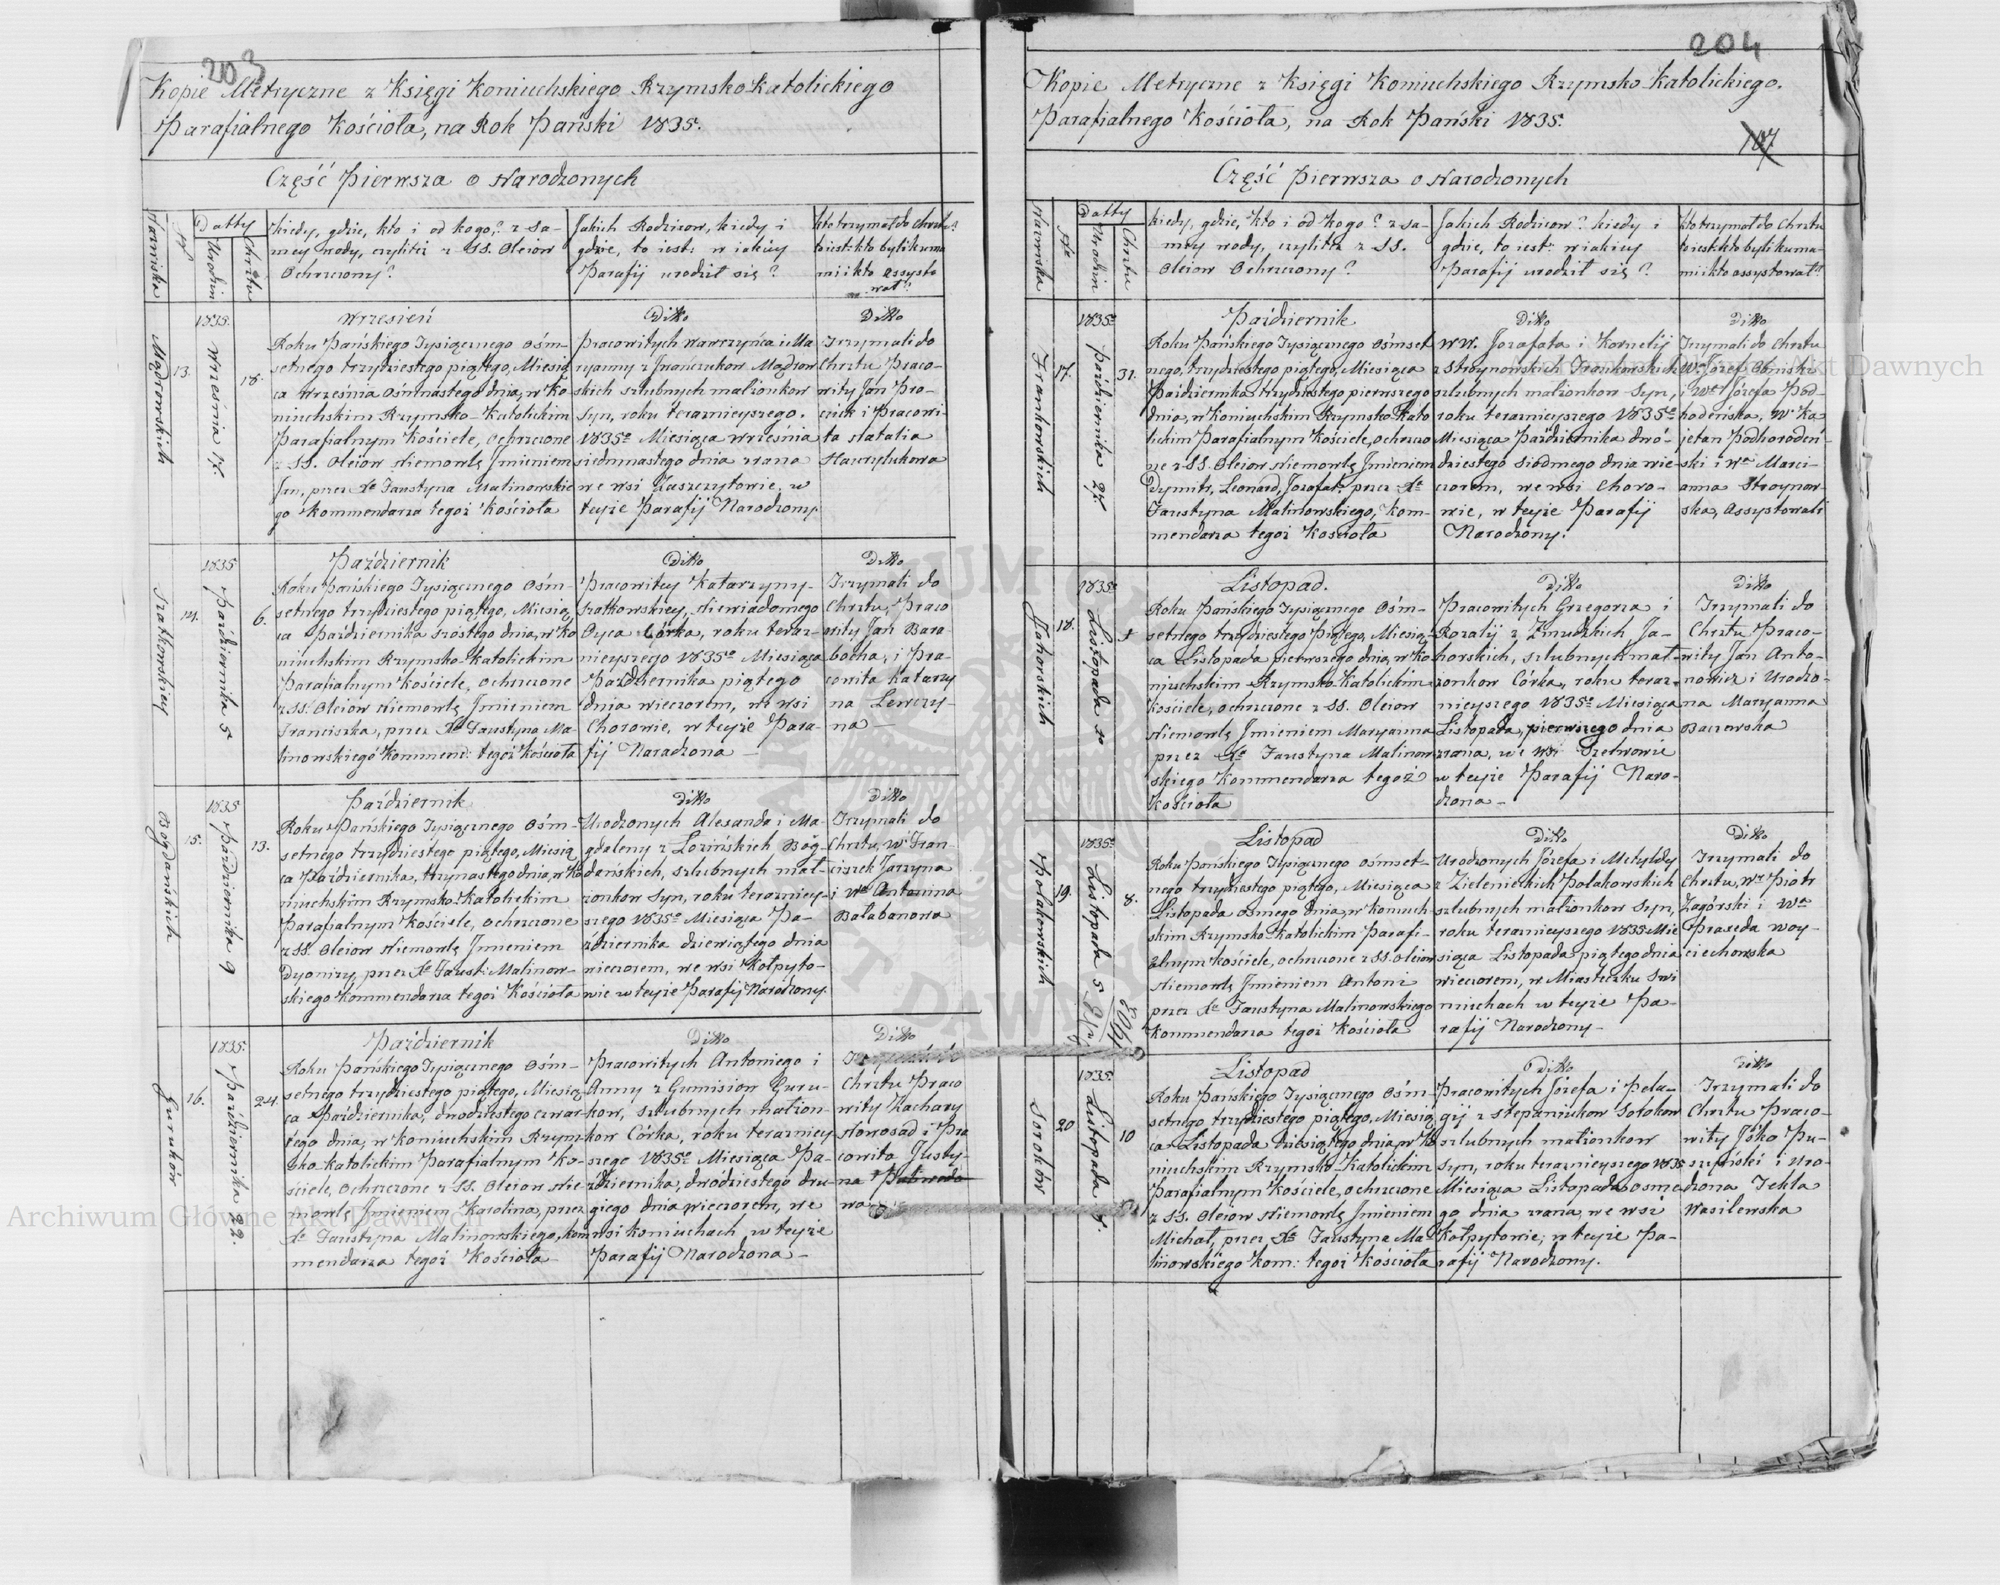 203
Kopie Metryczne z Księgi Koniuchskiego Rzymsko Katolickiego
Parafialnego Kościoła, na Rok Pański 1835.
Część Pierwsza o Narodzonych
Nazwiska
No
Datty
Urodzin
Chrztu
kiedy, gdzie, kto i od kogo? z sa-
mey wody, czyliteż z SS. Oleiow
Ochrzczony?
Jakich Rodzicow, kiedy i
gdzie, to iest: w iakiey
Parafij urodził się?
kto trzymał do Chrztu?
to iest: kto byli kuma
mi i kto assysto
wał?
Mądrowskich
13.
1835.
Września 17.
18.
Wrzesień
Roku Pańskiego Tysiącznego Ośm-
setnego trzydziestego piątego, Miesią
ca Września Ośmnastego dnia, w Ko
niuchskim Rzymsko-Katolickim
Parafialnym Kościele, Ochrzczone
z SS. Oleiow Niemowlę Jmieniem
Jan, przez Xa Faustyna Malinowskie
go Kommendarza tegoż Kościoła
Ditto
Pracowitych Wawrzyńca i Ma
ryanny z Jwańczukow Mądrow
skich szlubnych małżonkow
Syn, roku teraznieyszego
1835o Miesiąca Września
siedmnastego dnia zrana
we wsi Zaszczytowie, w
teyże Parafij Narodzony.
Ditto
Trzymali do
Chrztu Praco-
wity Jan Pro-
ciuk i Pracowi
ta Natalia
Hawrylukowa
Szatkowskiey
14.
1835
Października 5
6.
Październik
Roku Pańskiego Tysiącznego Ośm-
setnego trzydziestego piątego, Miesią
ca Października szóstego dnia, w Ko
niuchskim Rzymsko-Katolickim
Parafialnym Kościele, Ochrzczone
z SS. Oleiow Niemowlę Jmieniem
Franciszka, przez Xa Faustyna Ma-
linowskiego Kommend: tegoż Kościoła
Ditto
Pracowitey Katarzyny
Szatkowskiey, Niewiadomego
Oyca Córka, roku teraz-
nieyszego 1835o Miesiąca
Października piątego
dnia wieczorem, we wsi
Chorowie, w teyże Para-
fij Narodzona —
Ditto
Trzymali do
Chrztu, Praco
wity Jan Bara
bocha, i Pra-
cowita Katarzy
na Lewczy-
na —
Bogdańskich
15.
1835
Października 9
13.
Październik
Roku Pańskiego Tysiącznego Ośm-
setnego trzydziestego piątego, Miesią
ca Października, trzynastego dnia, w Ko
niuchskim Rzymsko-Katolickim
Parafialnym Kościele, Ochrzczone
z SS. Oleiow Niemowlę Jmieniem
Dyonizy, przez Xa Faust: Malinow-
skiego Kommendarza tegoż Kościoła
Ditto
Urodzonych Alexandra i Ma-
gdaleny z Łozińskich Bog-
dańskich, szlubnych mał-
żonkow Syn, roku teraznie-
szego 1835o Miesiąca Pa-
ździernika dziewiątego dnia
wieczorem, we wsi Kołpyto-
wie w teyże Parafij Narodzony.
Ditto
Trzymali do
Chrztu, Wy Fran-
ciszek Jarzyna
i Wa Antonina
Bałabanowa
Gurukow
16.
1835.
Października 22.
24.
Październik
Roku Pańskiego Tysiącznego Ośm-
setnego trzydziestego piątego, Miesią
ca Października, dwódziestego czwar-
tego dnia, w koniuchskim Rzym
sko-katolickim Parafialnym Ko-
ściele, Ochrzczone z SS. Oleiow Nie
mowlę Jmieniem Karolina, przez
Xa Faustyna Malinowskiego, kom
mendarza tegoż Kościoła
Ditto
Pracowitych Antoniego i
Anny z Gumisiow Guru-
kow, szlubnych małżon-
kow Córka, roku terazniey
szego 1835o Miesiąca Pa-
ździernika, dwódziestego dru-
giego dnia wieczorem, we
wsi Koniuchach, w teyże
Parafij Narodzona —
Ditto
Trzymali do
Chrztu Praco
wity Zachary
Nowosad i Pra
cowita Justy-
na
wa
204
107
Kopie Metryczne z Księgi Koniuchskiego Rzymsko Katolickiego.
Parafialnego Kościoła, na Rok Pański 1835.
Część Pierwsza o Narodzonych
Nazwiska
No
Datty
Urodzin
Chrztu
kiedy, gdzie, kto i od kogo? z sa-
mey wody, czyliteż z SS.
Oleiow Ochrzczony?
Jakich Rodzicow? kiedy i
gdzie, to iest: w iakiey
Parafij urodził się?
kto trzymał do Chrztu
to iest: kto byli kuma-
mi i kto assystował?
Frankowskich
17.
1835o
Października 27.
31.
Październik
Roku Pańskiego Tysiącznego Ośmset
nego, trzydziestego piątego, Miesiąca
Października trzydziestego pierwszego
dnia, w Koniuchskim Rzymsko-Kato
lickim Parafialnym Kościele, ochrzczo
ne z SS. Oleiow Niemowlę Jmieniem
Dymitr, Leonard, Jozafat, przez Xa
Faustyna Malinowskiego, Kom-
mendarza tegoż Kościoła
Ditto
WW. Jozafata i Kornelij
z Stroynowskich Frankowskich
szlubnych małżonkow Syn,
roku teraznieyszego 1835o
Miesiąca Października dwó-
dziestego siódmego dnia wie-
czorem, we wsi Choro-
wie, w teyże Parafij
Narodzony.
Ditto
Trzymali do Chrztu
i Wa Józefa Pod-
hodeńska, Wy Ka
jetan Podhorodeń-
ski i Wa Marci-
anna Stroynow-
ska, Assystowali
Jahorskich
18.
1835o
Listopada
1
Listopad.
Roku Pańskiego Tysiącznego Ośm-
setnego trzydziestego Piątego, Miesią-
ca Listopada pierwszego dnia, w Ko
niuchskim Rzymsko-Katolickim
Kościele, ochrzczone z SS. Oleiow
Niemowlę Jmieniem Maryanna
przez Xa Faustyna Malinow
skiego Kommendarza tegoż
Kościoła
Ditto
Pracowitych Grzegorza i
Rozalij z Żmudzkich Ja-
horskich, szlubnych mał-
żonkow Córka, roku teraz-
nieyszego 1835o Miesiąca
Listopada, pierwszego dnia
zrana, we wsi Szelwowie
w teyże Parafij Naro-
dzona —
Ditto
Trzymali do
Chrztu Praco-
wity Jan Anto-
nowicz i Urodzo-
na Maryanna
Baczewska
Polakowskich
19.
1835o
Listopada 5
8.
Listopad
Roku Pańskiego Tysiącznego ośmset-
nego trzydziestego piątego, Miesiąca
Listopada osmego dnia, w Koniuch
skim Rzymsko-Katolickim Parafi-
alnym Kościele, ochrzczone z SS. Oleiow
Niemowlę Jmieniem Antoni
przez Xa Faustyna Malinowskiego
Kommendarza tegoż Kościoła
Ditto
Urodzonych Józefa i Metyldy
z Zielenieckich Polakowskich
szlubnych małżonkow Syn,
roku teraznieyszego 1835 Mie
siąca Listopada piątego dnia
wieczorem, w Miasteczku Swi
niuchach w teyże Pa-
rafij Narodzony —
Ditto
Trzymali do
Chrztu, Wy Piotr
Zagórski i Wa
Praxeda Woy-
ciechowska
Sorokow
20
1835.
Listopada
10
Listopad
Roku Pańskiego Tysiącznego Ośm-
setnego trzydziestego piątego, Miesią-
ca Listopada dziesiątego dnia, w Ko
niuchskim Rzymsko-Katolickim
Parafialnym Kościele, ochrzczone
z SS. Oleiow Niemowlę Jmieniem
Michał, przez Xa Faustyna Ma
linowskiego Kom: tegoż Kościoła
Ditto
Pracowitych Józefa i Pela-
gij z Stepaniukow Sorokow
szlubnych małżonkow
Syn, roku teraznieyszego 1835
Miesiąca Listopada osme
go dnia zrana, we wsi
Kołpytowie, w teyże Pa-
rafij Narodzony.
Ditto
Trzymali do
Chrztu Praco-
wity Jóko Pu-
szyński i Uro-
dzona Tekla
Wasilewska
Archiwum Główne Akt Dawnych
Archiwum Główne Akt Dawnych